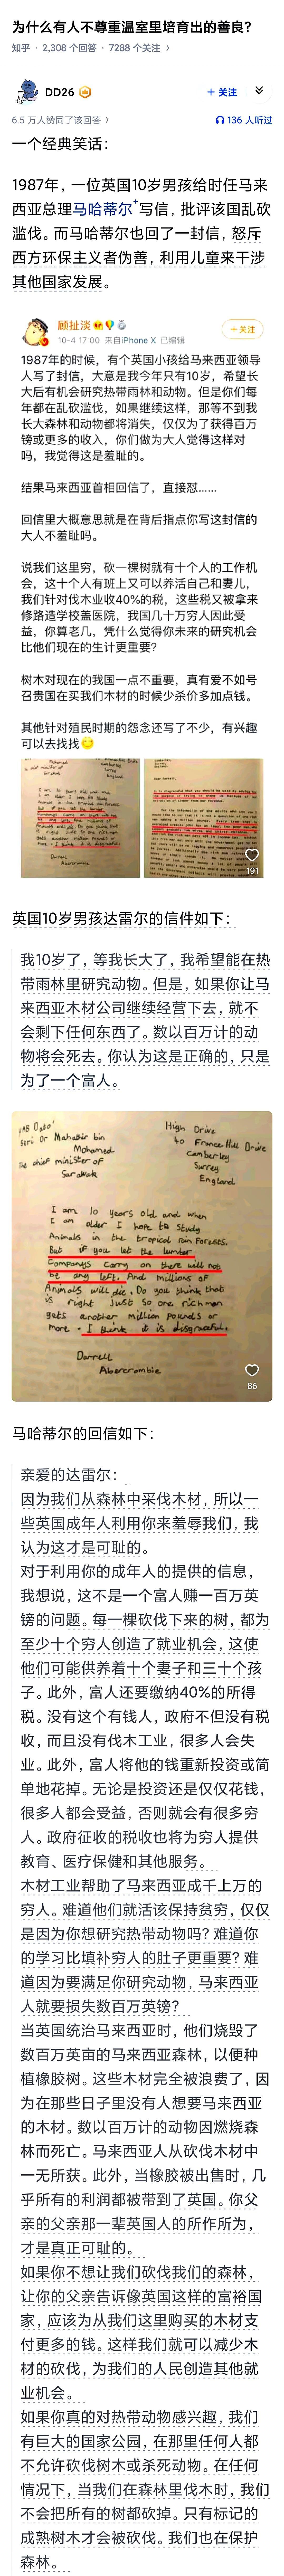 为什么有人不尊重温室里培育出的善良?
知乎 · 2,308 个回答 · 7288 个关注 >
DD26
+ 关注
6.5 万人赞同了该回答 >
136 人听过
一个经典笑话：
1987年，一位英国10岁男孩给时任马来
西亚总理马哈蒂尔写信，批评该国乱砍
滥伐。而马哈蒂尔也回了一封信，怒斥
西方环保主义者伪善，利用儿童来干涉
其他国家发展。
顾扯淡
+关注
10-4 17:00 来自iPhone X 已编辑
1987年的时候，有个英国小孩给马来西亚领导
人写了封信，大意是我今年只有10岁，希望长
大后有机会研究热带雨林和动物。但是你们每
年都在乱砍滥伐，如果继续这样，那等不到我
长大森林和动物都将消失，仅仅为了获得百万
镑或更多的收入，你们做为大人觉得这样对
吗，我觉得这是羞耻的。
结果马来西亚首相回信了，直接怼......
回信里大概意思就是在背后指点你写这封信的
大人不羞耻吗。
说我们这里穷，砍一棵树就有十个人的工作机
会，这十个人有班上又可以养活自己和妻儿，
我们针对伐木业收40%的税，这些税又被拿来
修路造学校盖医院，我国几十万穷人因此受
益，你算老几，凭什么觉得你未来的研究机会
比他们现在的生计更重要?
树木对现在的我国一点不重要，真有爱不如号
召贵国在买我们木材的时候少杀价多加点钱。
其他针对殖民时期的怨念还写了不少，有兴趣
可以去找找
191
英国10岁男孩达雷尔的信件如下：
我10岁了，等我长大了，我希望能在热
带雨林里研究动物。但是，如果你让马
来西亚木材公司继续经营下去，就不
会剩下任何东西了。数以百万计的动
物将会死去。你认为这是正确的，只是
为了一个富人。
High Drive
40 France Hill Drive
Camberley
Surrey
England
Seri Dr Mahathir bin
Mohamed
The chief minister of
Sarawak
I am 10 years old and when
I am older I hope to Study
Animals in the tropical rain Forests.
But if you let the lumber
Companys carry on there will not
be any left. And millions of
Animals will die. Do you think that
is right Just so one rich man
gets another million pounds or
more. I think it is disgraceful.
Darrell
Abercrombie
86
马哈蒂尔的回信如下：
亲爱的达雷尔：
因为我们从森林中采伐木材，所以一
些英国成年人利用你来羞辱我们，我
认为这才是可耻的。
对于利用你的成年人的提供的信息，
我想说，这不是一个富人赚一百万英
镑的问题。每一棵砍伐下来的树，都为
至少十个穷人创造了就业机会，这使
他们可能供养着十个妻子和三十个孩
子。此外，富人还要缴纳40%的所得
税。没有这个有钱人，政府不但没有税
收，而且没有伐木工业，很多人会失
业。此外，富人将他的钱重新投资或简
单地花掉。无论是投资还是仅仅花钱，
很多人都会受益，否则就会有很多穷
人。政府征收的税收也将为穷人提供
教育、医疗保健和其他服务。
木材工业帮助了马来西亚成千上万的
穷人。难道他们就活该保持贫穷，仅仅
是因为你想研究热带动物吗? 难道你
的学习比填补穷人的肚子更重要? 难
道因为要满足你研究动物，马来西亚
人就要损失数百万英镑?
当英国统治马来西亚时，他们烧毁了
数百万英亩的马来西亚森林，以便种
植橡胶树。这些木材完全被浪费了，因
为在那些日子里没有人想要马来西亚
的木材。数以百万计的动物因燃烧森
林而死亡。马来西亚人从砍伐木材中
一无所获。此外，当橡胶被出售时，几
乎所有的利润都被带到了英国。你父
亲的父亲那一辈英国人的所作所为，
才是真正可耻的。
如果你不想让我们砍伐我们的森林，
让你的父亲告诉像英国这样的富裕国
家，应该为从我们这里购买的木材支
付更多的钱。这样我们就可以减少木
材的砍伐，为我们的人民创造其他就
业机会。
如果你真的对热带动物感兴趣，我们
有巨大的国家公园，在那里任何人都
不允许砍伐树木或杀死动物。在任何
情况下，当我们在森林里伐木时，我们
不会把所有的树都砍掉。只有标记的
成熟树木才会被砍伐。我们也在保护
森林。